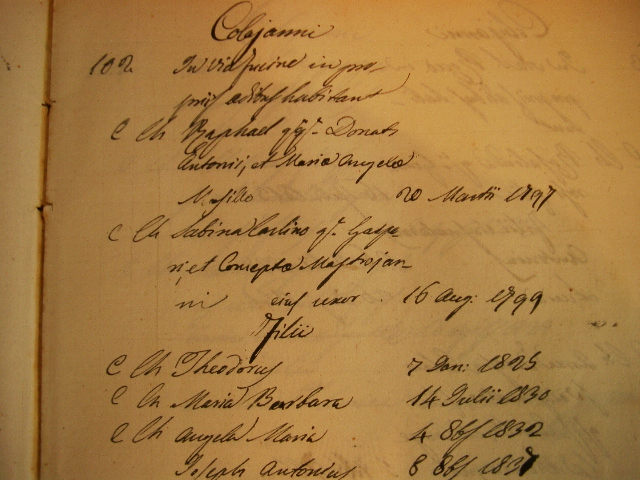 Colajanni
102 In via fucine in pro-
priis ædibus habitant
C Ch Raphael qm Donati
Antonii, et Maria Angela
20 Martii 1797
C Ch Sabina Carlino qm Gaspe-
ri, et Concepta Mastrojan-
ni ejus uxor. 16 Aug: 1799
Filii
C Ch Theodorus 7 Jan: 1825
C Ch Maria Barbara 14 Julii 1830
C Ch Angela Maria 4 8bs 1832
Joseph Antonius 8 8bs